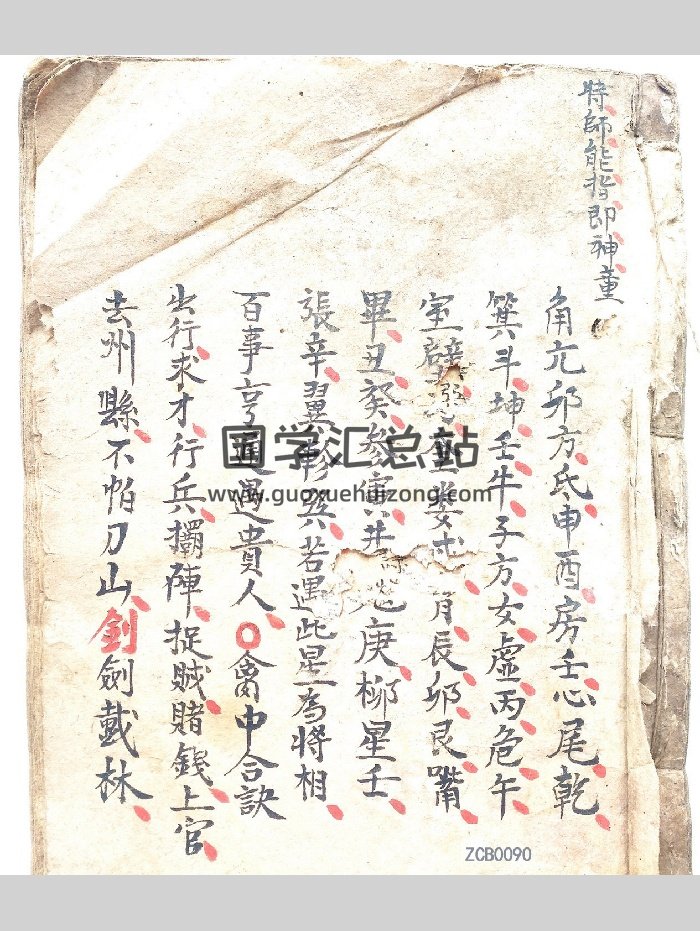 時師能指即神童
角亢卯方氐申酉房壬心尾乾
箕斗坤壬牛子方女虛丙危午
室壁 婁 胃辰卯艮嘴
畢丑癸參 井 庚柳星壬
張辛翼 若遇此星為將相
百事亨通遇貴人〇禽中合訣
出行求才行兵擺陣捉賊賭錢上官
去州縣不怕刀山劍劍戟林
国学汇总站
www.guoxuehuizong.com
ZCB0090